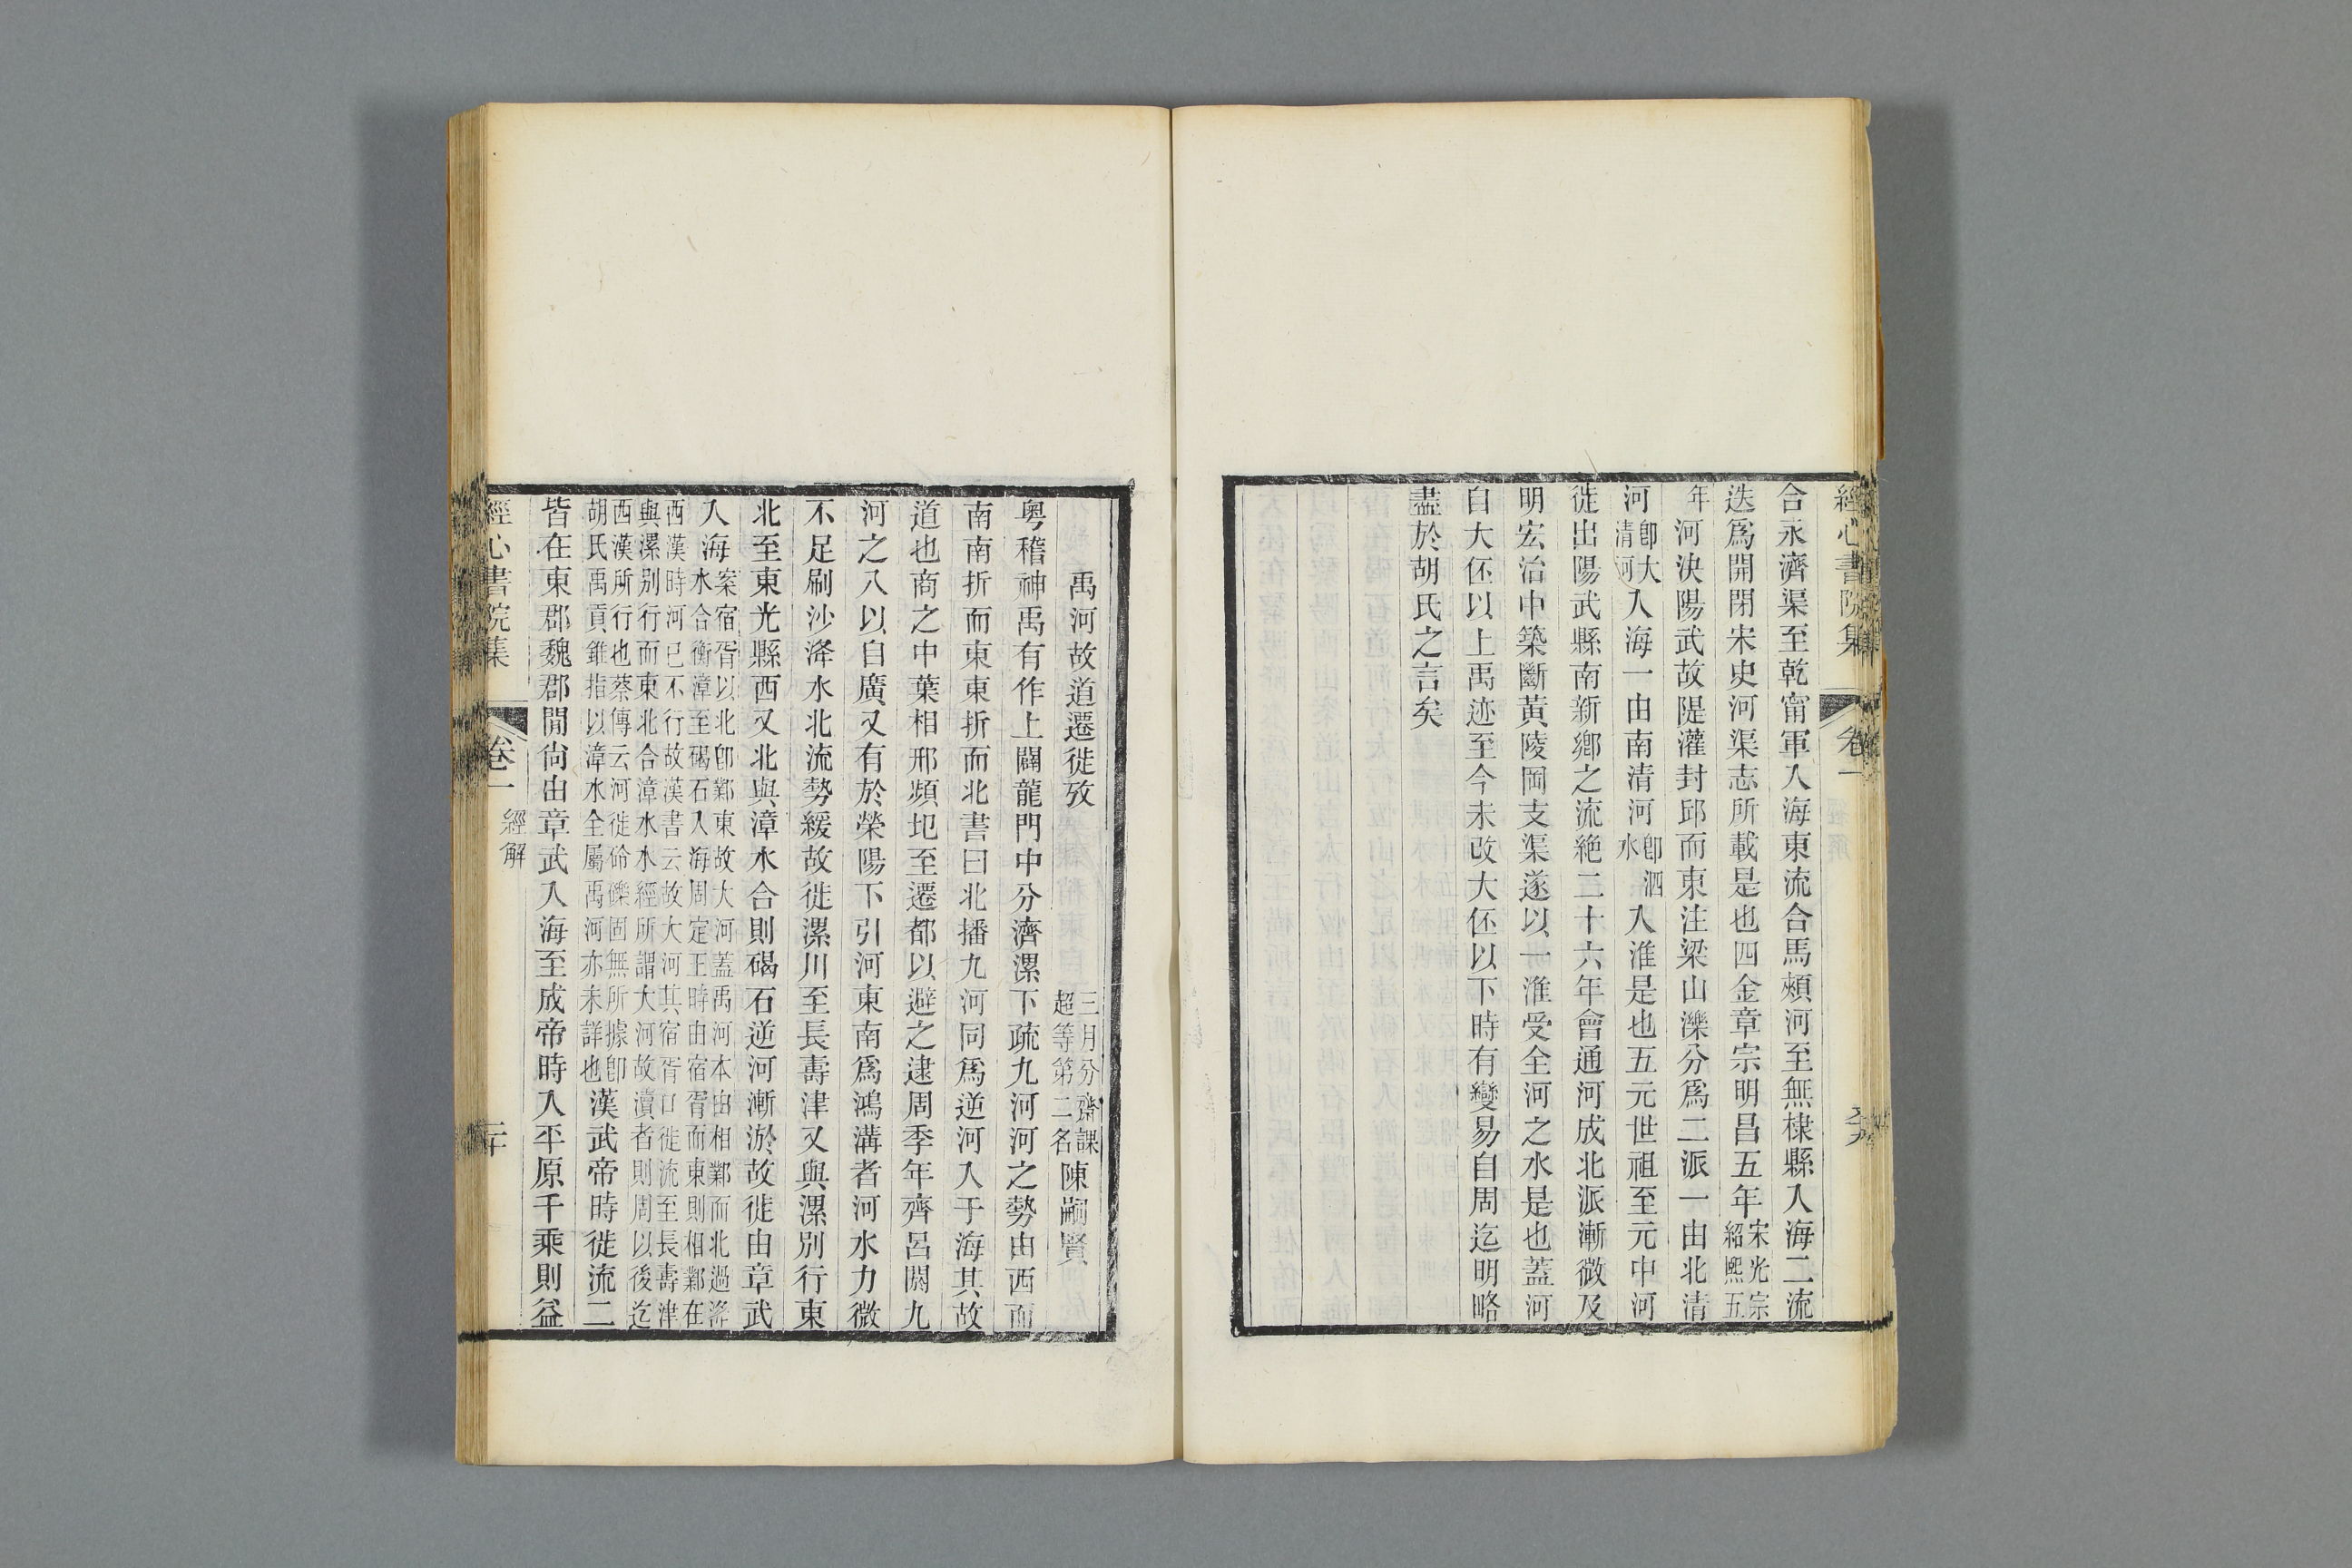 經心書院集 卷一
合永濟渠至乾甯軍入海東流合馬頰河至無棣縣入海二流
迭爲開閉宋史河渠志所載是也四金章宗明昌五年宋光宗紹熙五
年河決陽武故隄灌封邱而東注梁山濼分爲二派一由北清
河卽大清河入海一由南清河卽泗水入淮是也五元世祖至元中河
徙出陽武縣南新鄉之流絶二十六年會通河成北派漸微及
明宏治中築斷黃陵岡支渠遂以一淮受全河之水是也蓋河
自大伾以上禹迹至今未改大伾以下時有變易自周迄明略
盡於胡氏之言矣
禹河故道遷徙攷 三月分齋課超等第二名 陳嗣賢
粵稽神禹有作上闢龍門中分濟漯下疏九河河之勢由西而
南南折而東東折而北書曰北播九河同爲逆河入于海其故
道也商之中葉相邢頻圯至遷都以避之逮周季年齊呂閼九
河之八以自廣又有於榮陽下引河東南爲鴻溝者河水力微
不足刷沙洚水北流勢緩故徙漯川至長壽津又與漯別行東
北至東光縣西又北與漳水合則碣石逆河漸淤故徙由章武
入海案宿胥以北卽鄴東故大河蓋禹河本由相鄴而北過洚水合衡漳至碣石入海周定王時由宿胥而東則相鄴在
西漢時河已不行故漢書云故大河其宿胥口徙流至長壽津與漯別行而東北合漳水水經所謂大河故瀆者則周以後迄
西漢所行也蔡傳云河徙砱礫固無所據卽胡氏禹貢錐指以漳水全屬禹河亦未詳也漢武帝時徙流二
皆在東郡魏郡閒尙由章武入海至成帝時入平原千乘則益
經心書院集 卷一 經解 三十